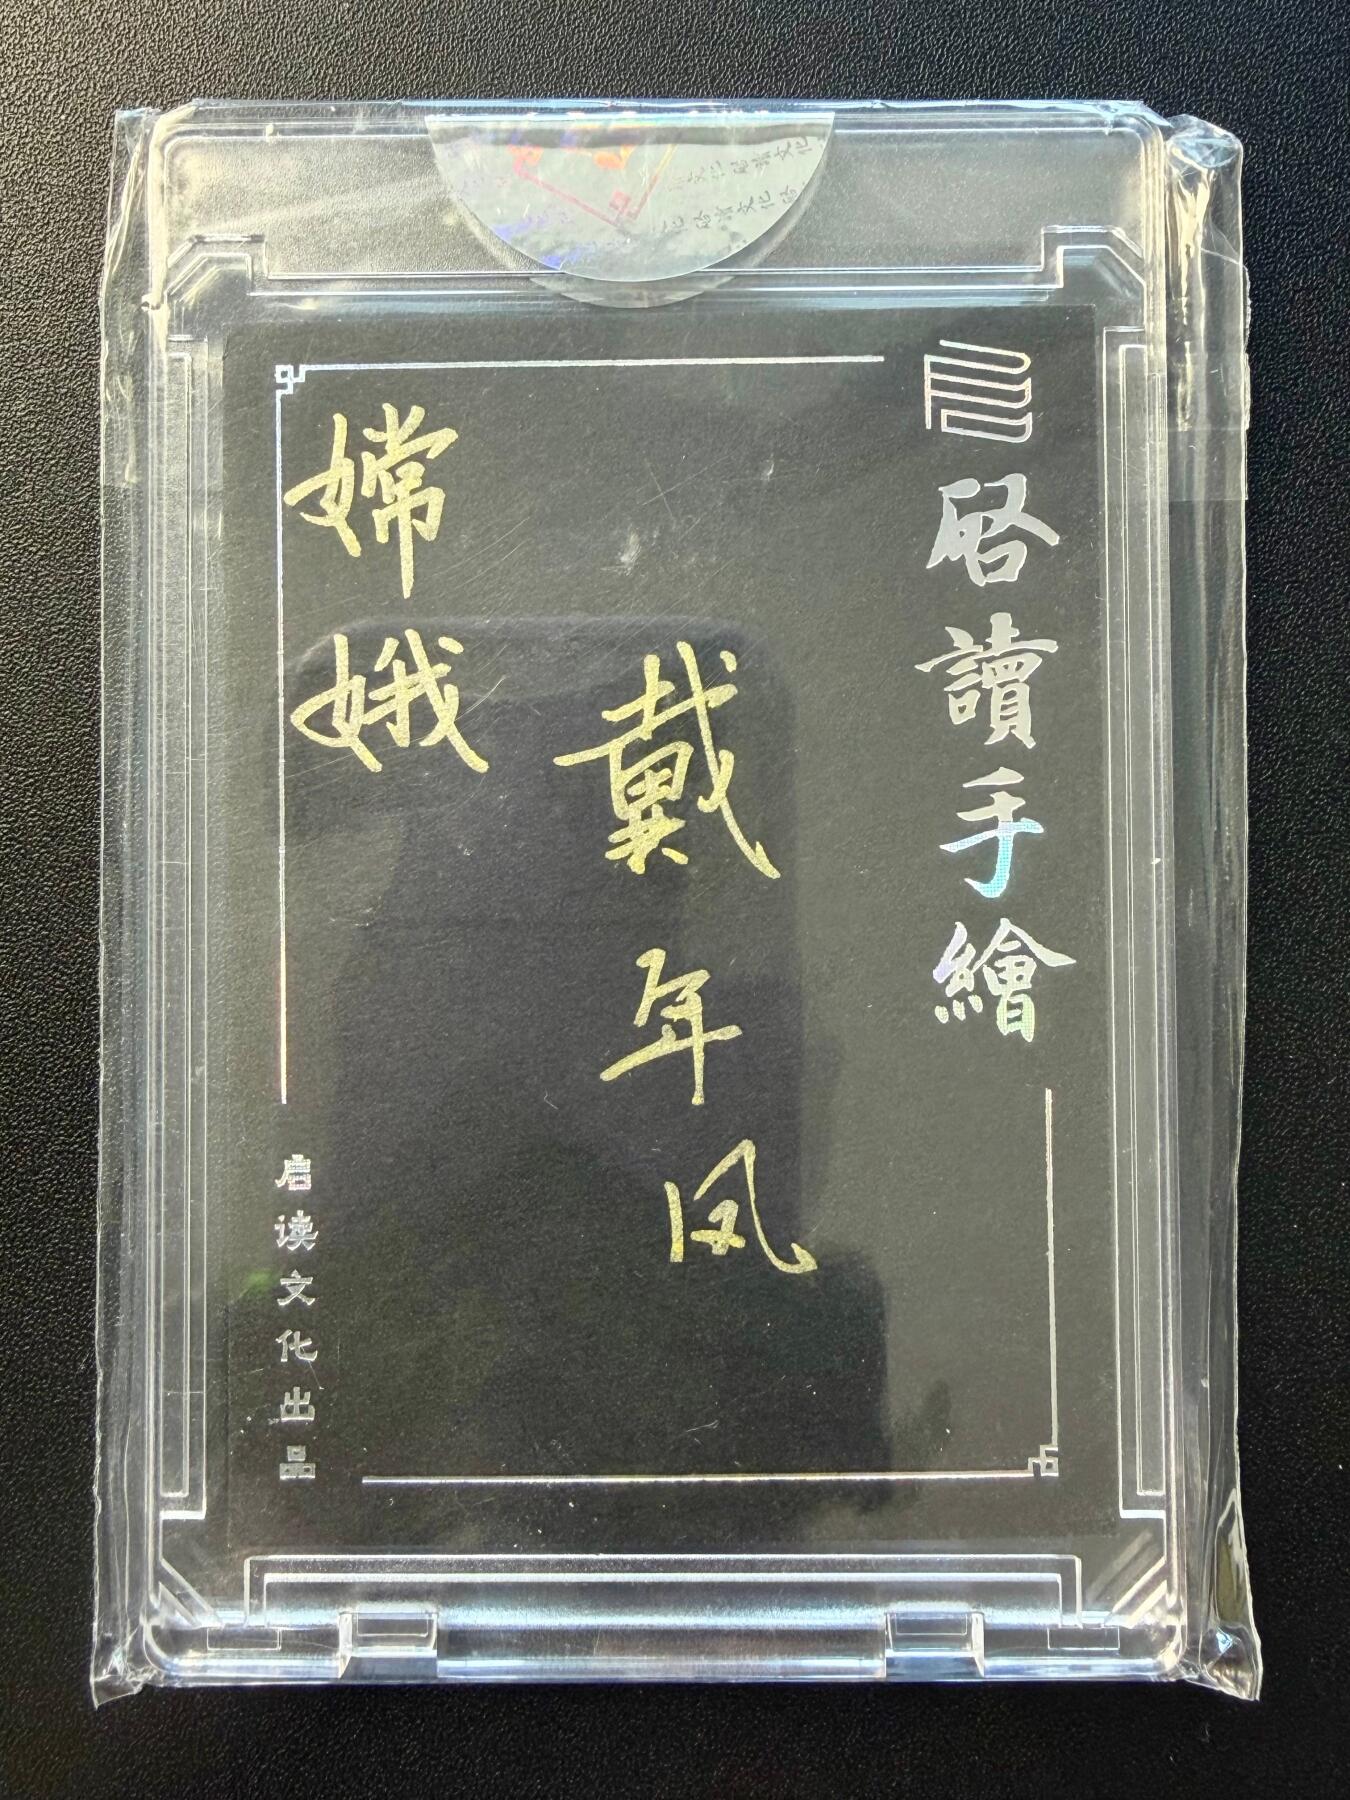 启讀手繪
戴年凤
嫦娥
启读文化出品